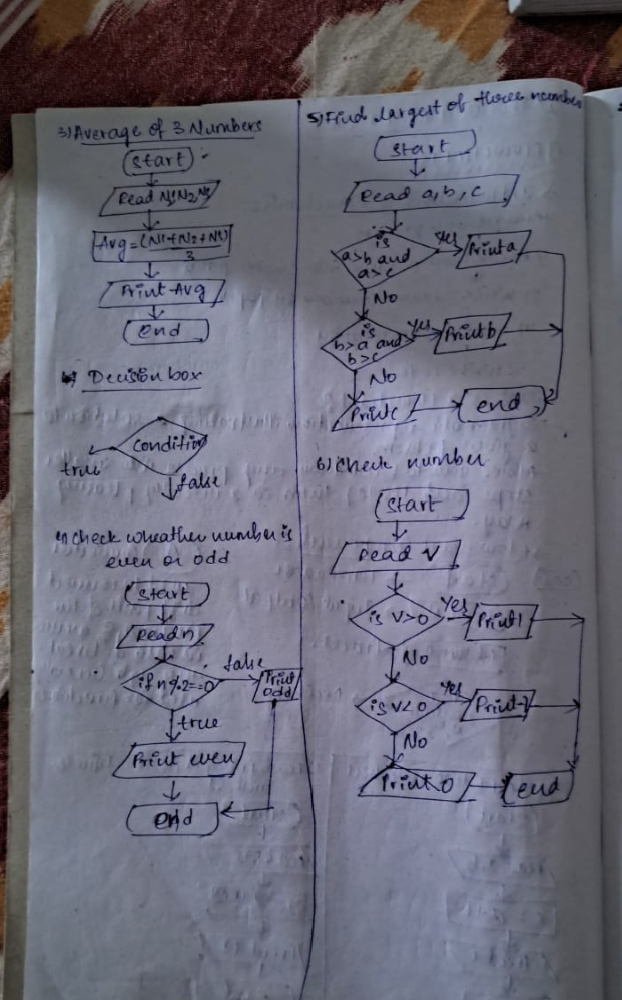 3) Average of 3 Numbers
Start
Read N1 N2 N3
Avg = (N1+N2+N3)
3
Print Avg
end
Decision box
condition
true
false
4) check wheather number is
even or odd
Start
Read n
if n%2==0
false
Print
odd
true
Print even
end
5) Find largest of three number
Start
Read a, b, c
is
a>b and
a>c
yes
Print a
No
is
b>a and
b>c
Yes
Print b
No
Print c
end
6) Check number
Start
Read V
is V>0
Yes
Print 1
No
is V<0
Yes
Print -1
No
Print 0
end